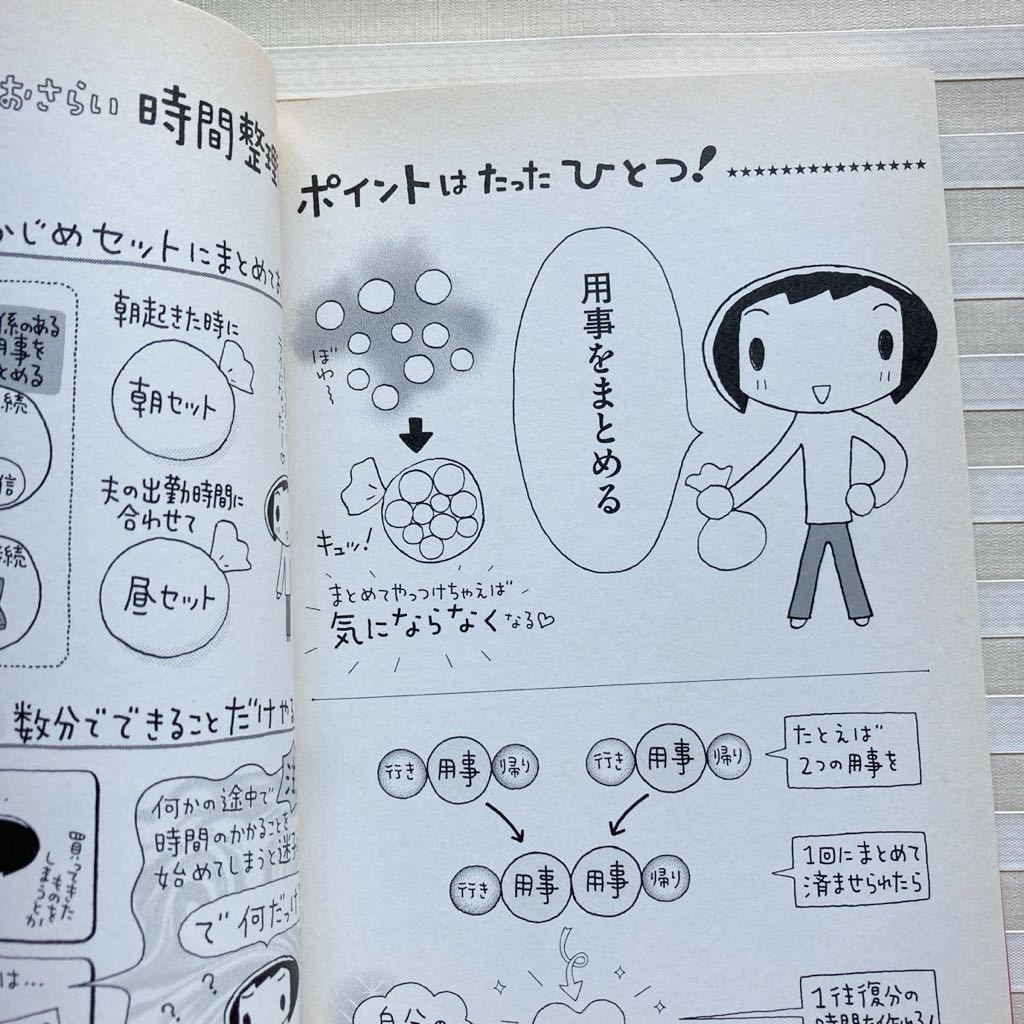 おさらい 時間整理
かじめセットにまとめてお
係のある
用事を
とめる
続
信
続
朝起きた時に
朝セット
夫の出勤時間に
合わせて
昼セット
数分でできることだけやる
買ってきた
ものを
しまうとか
は…
何かの途中で
時間のかかることを
始めてしまうと迷子
で 何だっけ
?
?
ポイントはたったひとつ!★★★★★★★★★★★★★★★
用事をまとめる
ぼわ〜
キュッ!
まとめてやっつけちゃえば
気にならなくなる♡
行き 用事 帰り
行き 用事 帰り
たとえば
2つの用事を
行き 用事 用事 帰り
1回にまとめて
済ませられたら
自分の
1往復分の
時間を作れる!